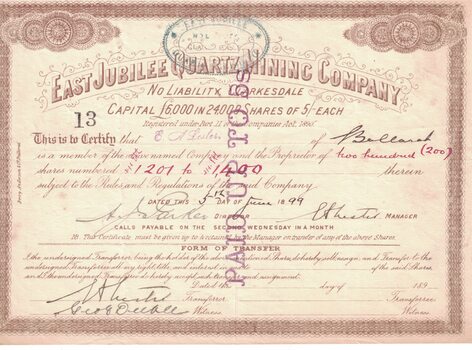 EAST JUBILEE QUARTZ MINING COMPANY
NO LIABILITY, PARKESDALE
CAPITAL £6,000 IN 24,000 SHARES OF 5/- EACH
Registered under Part II of the Companies Act, 1890
13
This is to Certify that E A Peders of Ballarat
is a member of the above named Company and the Proprietor of two hundred (200)
shares numbered 1201 to 1400 therein
subject to the Rules and Regulations of the said Company
DATED THIS 5th DAY OF June 1899
DIRECTOR MANAGER
CALLS PAYABLE ON THE SECOND WEDNESDAY IN A MONTH
This Certificate must be given up to the Manager on transfer of any of the above Shares.
FORM OF TRANSFER
I, the undersigned Transferor, being the holder of the above mentioned Share, do hereby sell, assign, and Transfer to the
undersigned Transferee, all my right, title, and interest of the said Shares,
and I the undersigned Transferee do hereby accept such transfer and assignment.
Dated this day of 189
Transferor Transferee
Geo G Deeble Witness Witness
PAID UP TO